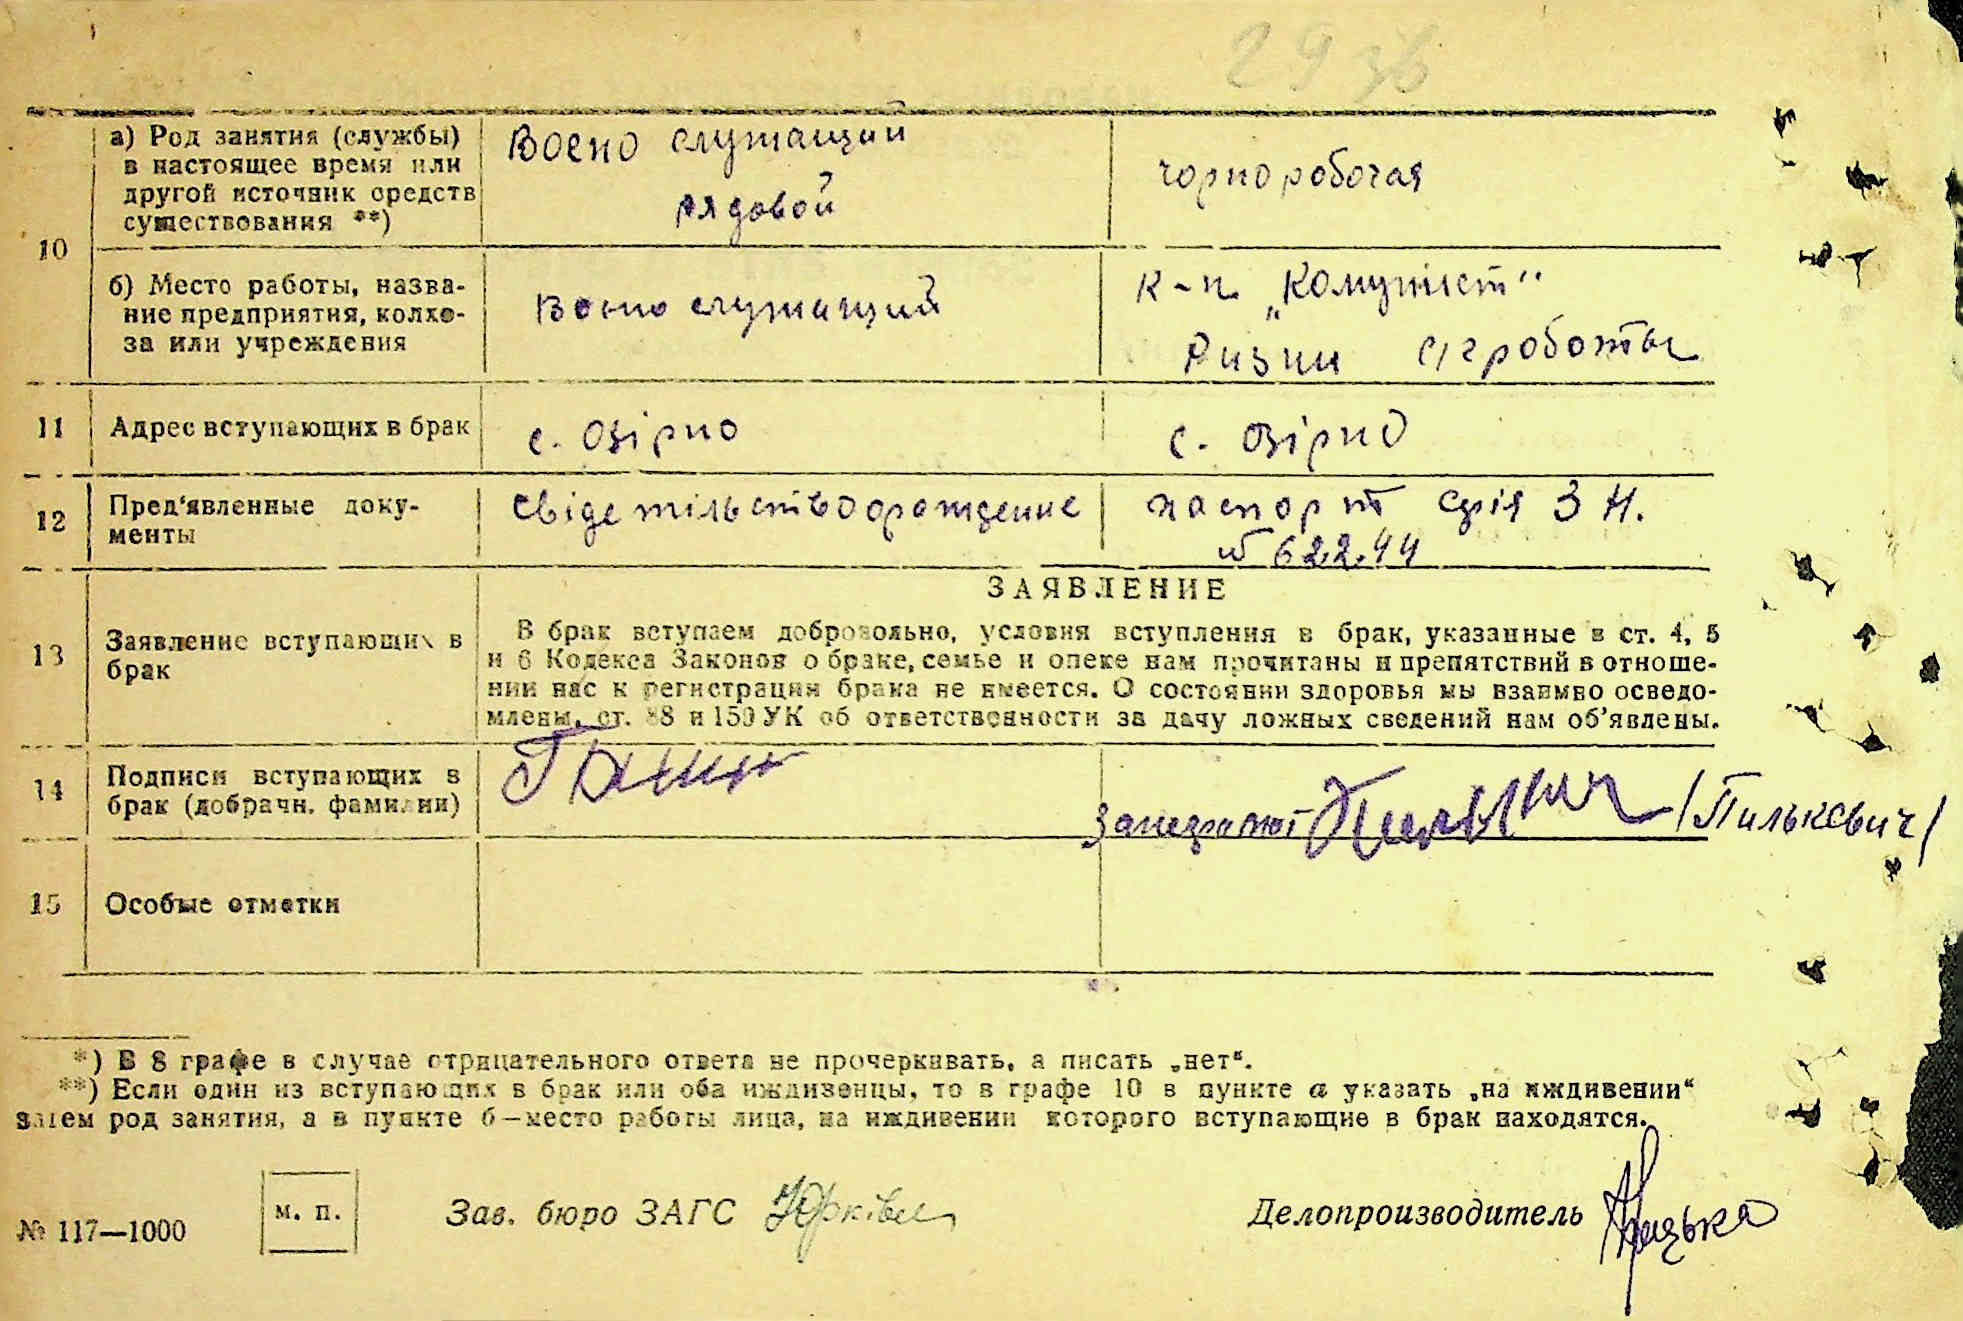 29 зв
а) Род занятия (службы)
в настоящее время или
другой источник средств
существования **)
Воено служащий
рядовой
чорноробочая
10
б) Место работы, назва-
ние предприятия, колхо-
за или учреждения
Воено служащий
к-п. „Комуніст“
Ризни
11
Адрес вступающих в брак
с. Озірно
с. Озірно
12
Пред'явленные доку-
менты
свідетільство о рождение
паспорт серія З Н.
№ 622.44
13
Заявление вступающих в
брак
ЗАЯВЛЕНИЕ
В брак вступаем добровольно, условия вступления в брак, указанные в ст. 4, 5
и 6 Кодекса Законов о браке, семье и опеке нам прочитаны и препятствий в отноше-
нии нас к регистрации брака не имеется. О состоянии здоровья мы взаимно осведо-
млены, ст. 88 и 150 УК об ответственности за дачу ложных сведений нам об'явлены.
14
Подписи вступающих в
брак (добрачн. фамилии)
/Пилькевич/
15
Особые отметки
*) В 8 графе в случае отрицательного ответа не прочеркивать, а писать „нет“.
**) Если один из вступающих в брак или оба иждивенцы, то в графе 10 в пункте а указать „на иждивении“
затем род занятия, а в пункте б—место работы лица, на иждивении которого вступающие в брак находятся.
№ 117—1000
м. п.
Зав. бюро ЗАГС
Делопроизводитель